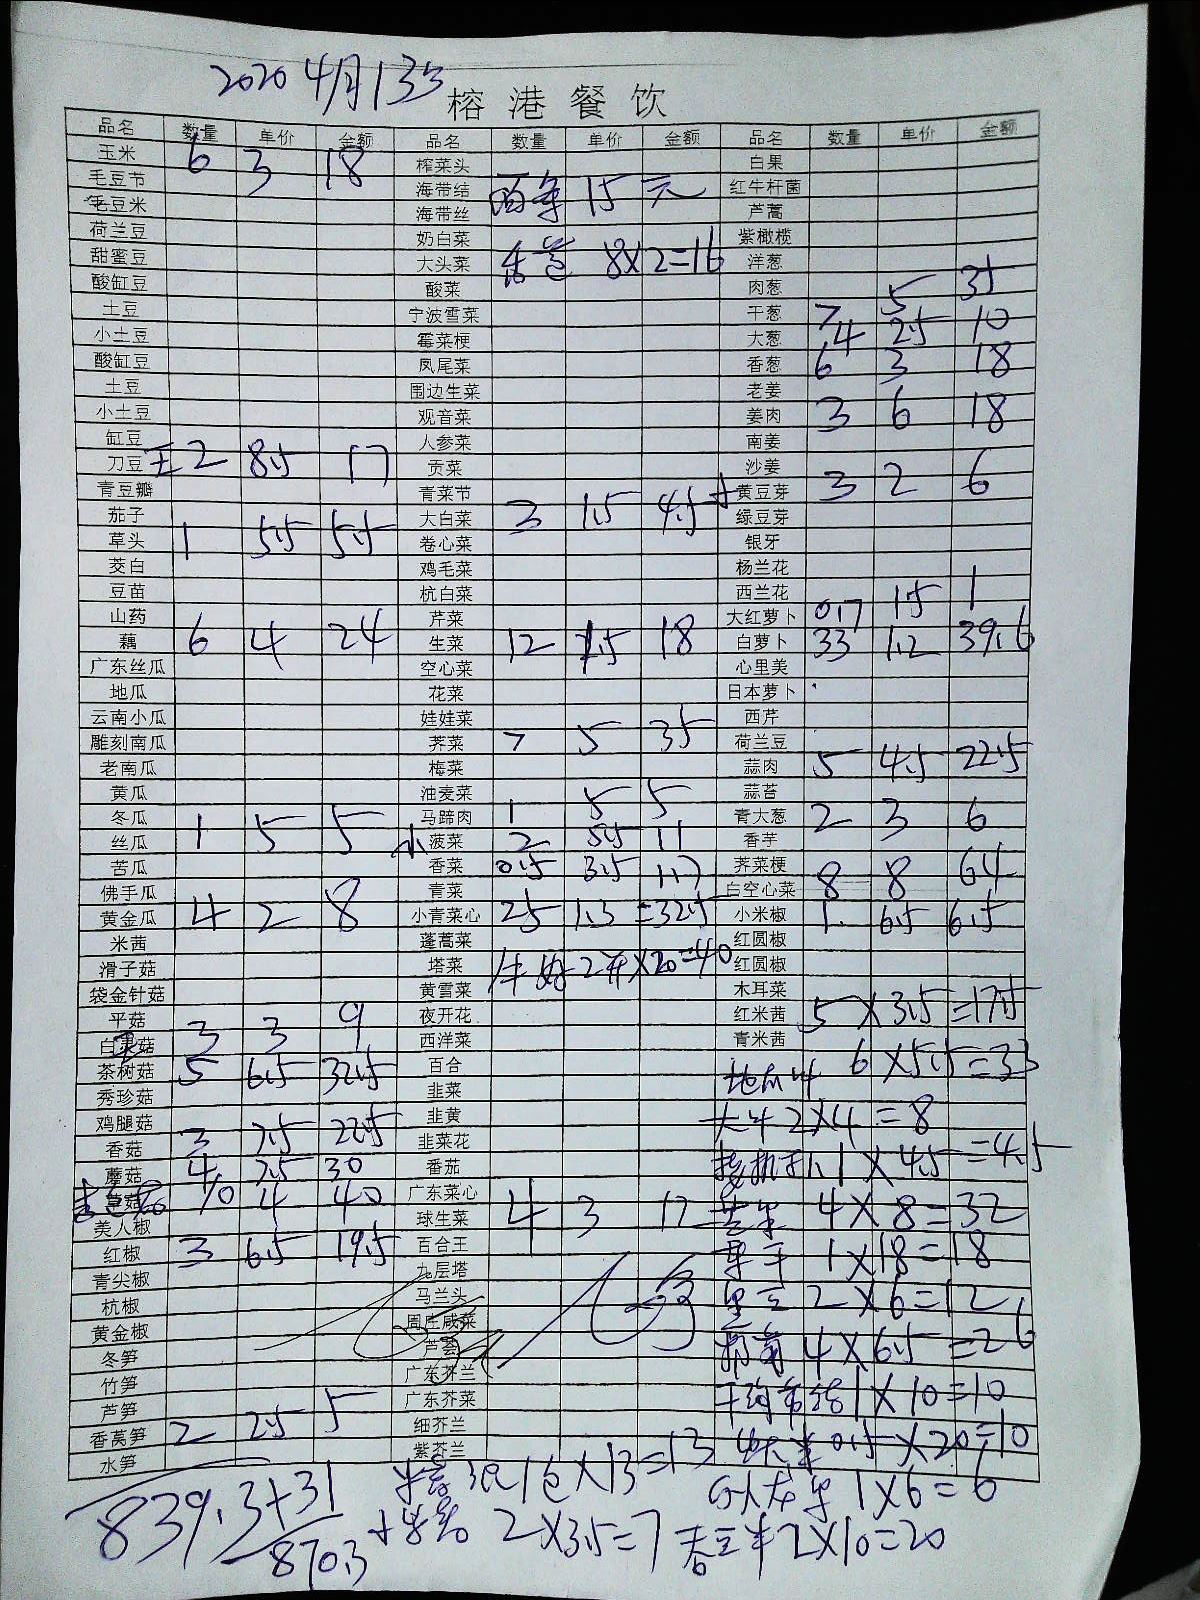 2020 4月13号
榕港餐饮
品名 数量 单价 金额 品名 数量 单价 金额 品名 数量 单价 金额
玉米 6 3 18 榨菜头 白果
毛豆节 海带结 西芹 15元 红牛杆菌
毛豆米 海带丝 芦蒿
荷兰豆 奶白菜 紫橄榄
甜蜜豆 大头菜 8×2=16 洋葱
酸缸豆 酸菜 肉葱
土豆 宁波雪菜 干葱 7 5 35
小土豆 霉菜梗 大葱 4 2.5 10
酸缸豆 凤尾菜 香葱 6 3 18
土豆 围边生菜 老姜
小土豆 观音菜 姜肉 3 6 18
缸豆 人参菜 南姜
刀豆 2 8.5 17 贡菜 沙姜
青豆瓣 青菜节 黄豆芽 3 2 6
茄子 大白菜 3 1.5 4.5 绿豆芽
草头 1 5.5 5.5 卷心菜 银牙
茭白 鸡毛菜 杨兰花
豆苗 杭白菜 西兰花
山药 芹菜 大红萝卜 0.7 1.5 1
藕 6 4 24 生菜 12 1.5 18 白萝卜 33 1.2 39.6
广东丝瓜 空心菜 心里美
地瓜 花菜 日本萝卜
云南小瓜 娃娃菜 西芹
雕刻南瓜 荠菜 7 5 35 荷兰豆
老南瓜 梅菜 蒜肉 5 4.5 22.5
黄瓜 油麦菜 蒜苔
冬瓜 1 5 5 马蹄肉 1 5 5 青大葱 2 3 6
丝瓜 小菠菜 2 5.5 11 香芋
苦瓜 香菜 0.5 3.5 1.7 荠菜梗
佛手瓜 青菜 白空心菜 8 8 64
黄金瓜 4 2 8 小青菜心 25 1.3 =32.5 小米椒 1 6.5 6.5
米茜 蓬蒿菜 红圆椒
滑子菇 塔菜 ×20=40 红圆椒
袋金针菇 黄雪菜 木耳菜
平菇 3 3 9 夜开花 红米茜 5×3.5=17.5
白灵菇 西洋菜 青米茜
茶树菇 5 6.5 32.5 百合 6×5.5=33
秀珍菇 韭菜
鸡腿菇 韭黄 2×4=8
香菇 3 7.5 22.5 韭菜花
蘑菇 4 7.5 30 番茄 1.1×4.5=4.5
草菇 10 4 40 广东菜心
美人椒 球生菜 4 3 12 4×8=32
红椒 3 6.5 19.5 百合王 1×18=18
青尖椒 九层塔
杭椒 马兰头 2×6=12
黄金椒 周庄咸菜
冬笋 芦荟 4×6.5=26
竹笋 广东芥兰
芦笋 广东芥菜 1×10=10
香莴笋 2 2.5 5 细芥兰
水笋 紫芥兰 0.5×20=10
1包×13=13 1×6=6
839.3+31 2×3.5=7 2×10=20
870.3